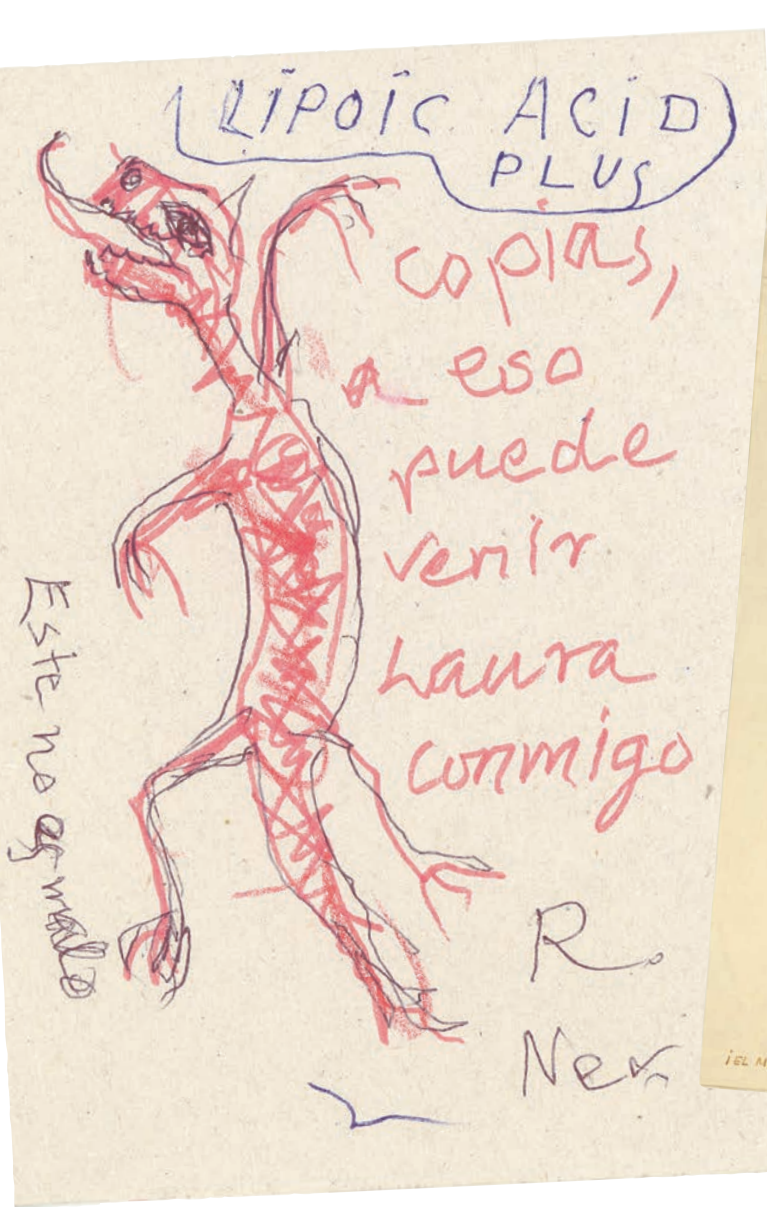 LIPOIC ACID
PLUS
copias,
a eso
puede
venir
Laura
conmigo
Este no es malo
R.
Ner.
¡EL M